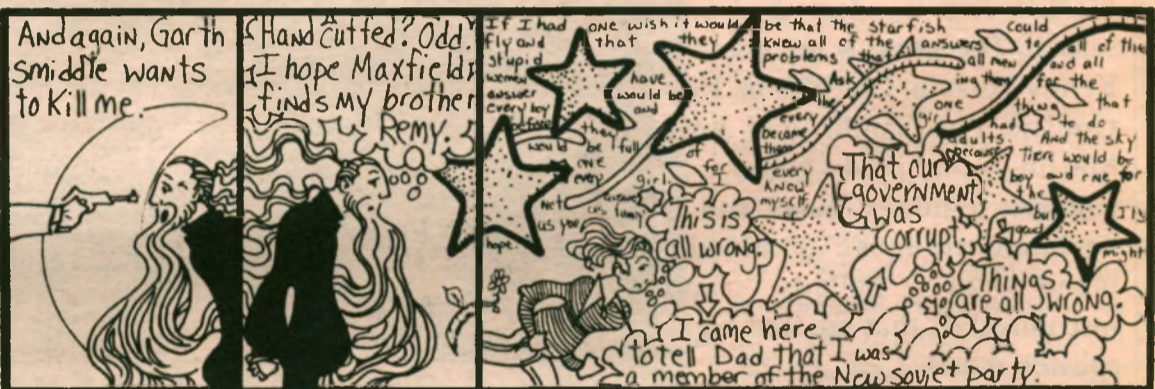 And again, Garth
Smiddle wants
to Kill me.
Hand cuffed? Odd.
I hope Maxfield
finds my brother
Remy.
If I had one wish it would be that the starfish could
fly and that they knew all of the answers to all of the
stupid problems that all men and all
women have Ask ing them for the
answer would be the one thing that
every boy and every girl had to do
before they became adults. And the sky
would be full of them because There would be
one for every boy and one for
every girl
Not as you
hope.
This is
all wrong.
That our
government
was
corrupt.
Things
are all wrong.
I came here
to tell Dad that I was
a member of the New soviet party.